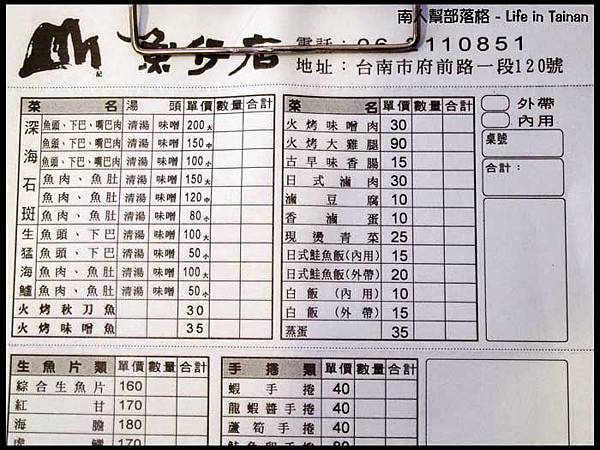 南人幫部落格 - Life in Tainan
魚仔店
記
電話：06-2110851
地址：台南市府前路一段120號
菜名 湯頭 單價 數量 合計
深海石斑
魚頭、下巴、嘴巴肉 清湯 味噌 200大
魚頭、下巴、嘴巴肉 清湯 味噌 150中
魚頭、下巴、嘴巴肉 清湯 味噌 100小
魚肉、魚肚 清湯 味噌 150大
魚肉、魚肚 清湯 味噌 120中
魚肉、魚肚 清湯 味噌 80小
生猛海鱸
魚頭、下巴 清湯 味噌 100大
魚頭、下巴 清湯 味噌 50小
魚肉、魚肚 清湯 味噌 100大
魚肉、魚肚 清湯 味噌 50小
火烤秋刀魚 30
火烤味噌魚 35
菜名 單價 數量 合計
火烤味噌肉 30
火烤大雞腿 90
古早味香腸 15
日式滷肉 30
滷豆腐 10
香滷蛋 10
現燙青菜 25
日式鮭魚飯(內用) 15
日式鮭魚飯(外帶) 20
白飯(內用) 10
白飯(外帶) 15
蒸蛋 35
外帶
內用
桌號
合計：
生魚片類 單價 數量 合計
綜合生魚片 160
紅甘 170
海膽 180
170
手捲類 單價 數量 合計
蝦手捲 40
龍蝦醬手捲 40
蘆筍手捲 40
鮭魚卵手捲 80